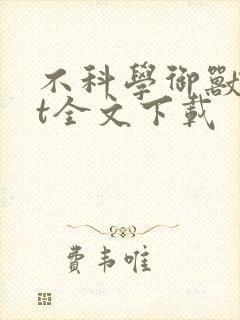 不科學御獸
t全文下載
費韋唯